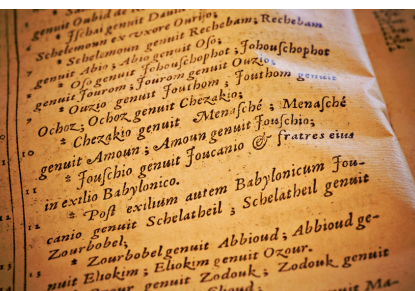 genuit Oubid de
* Jſchai genuit Dauid
Schelemoun ex vxore Ourijo;
7 * Schelemoun genuit Rechebam; Rechebam
genuit Abio; Abio genuit Oſo;
8 * Oſo genuit Jehouſchophot; Johouſchophot
genuit Jourom; Jourom genuit Ouzio;
9 * Ouzio genuit Jouthom; Jouthom genuit
Ochoz; Ochoz genuit Chezakio;
10 * Chezakio genuit Menaſché; Menaſché
genuit Amoun; Amoun genuit Jouſchio;
11 * Jouſchio genuit Joucanio & fratres eius
in exilio Babylonico.
12 * Poſt exilium autem Babylonicum Jou-
canio genuit Schelatheil; Schelatheil genuit
Zourbobel;
13 * Zourbobel genuit Abbioud; Abbioud ge-
nuit Eliokim; Eliokim genuit Ozour.
genuit Zodouk; Zodouk genuit